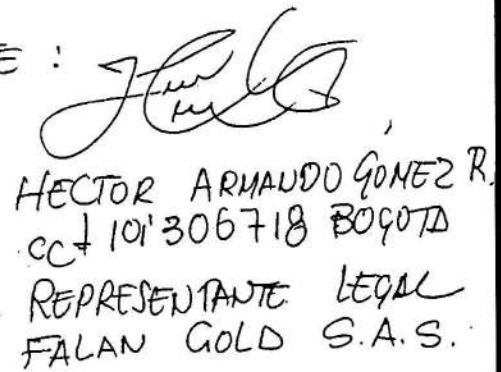 E :
HECTOR ARMANDO GOMEZ R.
CC# 101'306718 BOGOTA
REPRESENTANTE LEGAL
FALAN GOLD S.A.S.